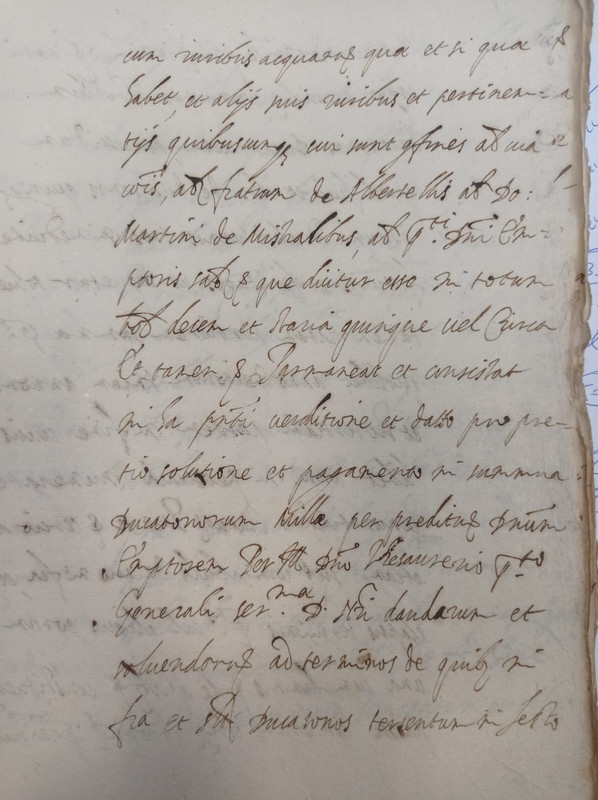 cum iuribus aquarum qua et si qua
habet, et alijs suis iuribus et pertinen=
tijs quibuscunq, cui sunt confines ab una
via, ab fratrum de Albertellis ab Do:
Martini de Mistralibus, ab Dni Em=
ptoris que dicitur esse in totum
decem et staria quinque vel Circa
Et tamen Permaneat et consistat
in hac pnti venditione et dato pro pre=
tio solutione et pagamento in summa
Ducatonorum Mille per preditum Dnum
Emptorem Per Ill Dno Thesaurerio
Generali Ser.ma D. Nri dandorum et
soluendorum ad terminos de quib in
fra et Ducatonos tercentum in festo